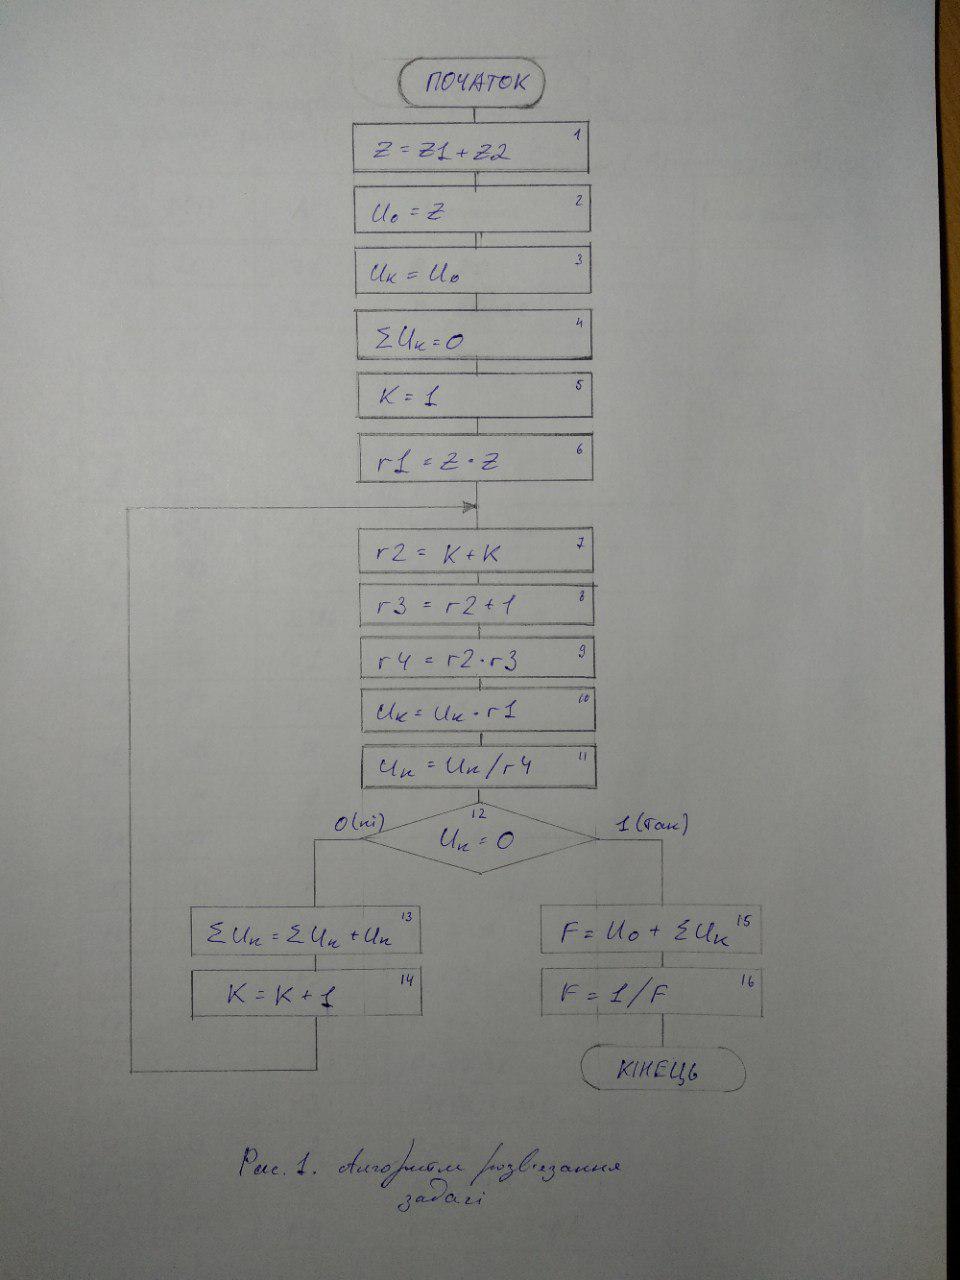 ПОЧАТОК
1
Z = Z1 + Z2
2
U₀ = Z
3
Uₖ = U₀
4
ΣUₖ = 0
5
K = 1
6
r1 = Z · Z
7
r2 = K + K
8
r3 = r2 + 1
9
r4 = r2 · r3
10
Uₖ = Uₖ · r1
11
Uₖ = Uₖ / r4
12
0 (ні) Uₖ = 0 1 (так)
13
ΣUₖ = ΣUₖ + Uₖ
15
F = U₀ + ΣUₖ
14
K = K + 1
16
F = 1 / F
КІНЕЦЬ
Рис. 1. Алгоритм розв'язання
задачі